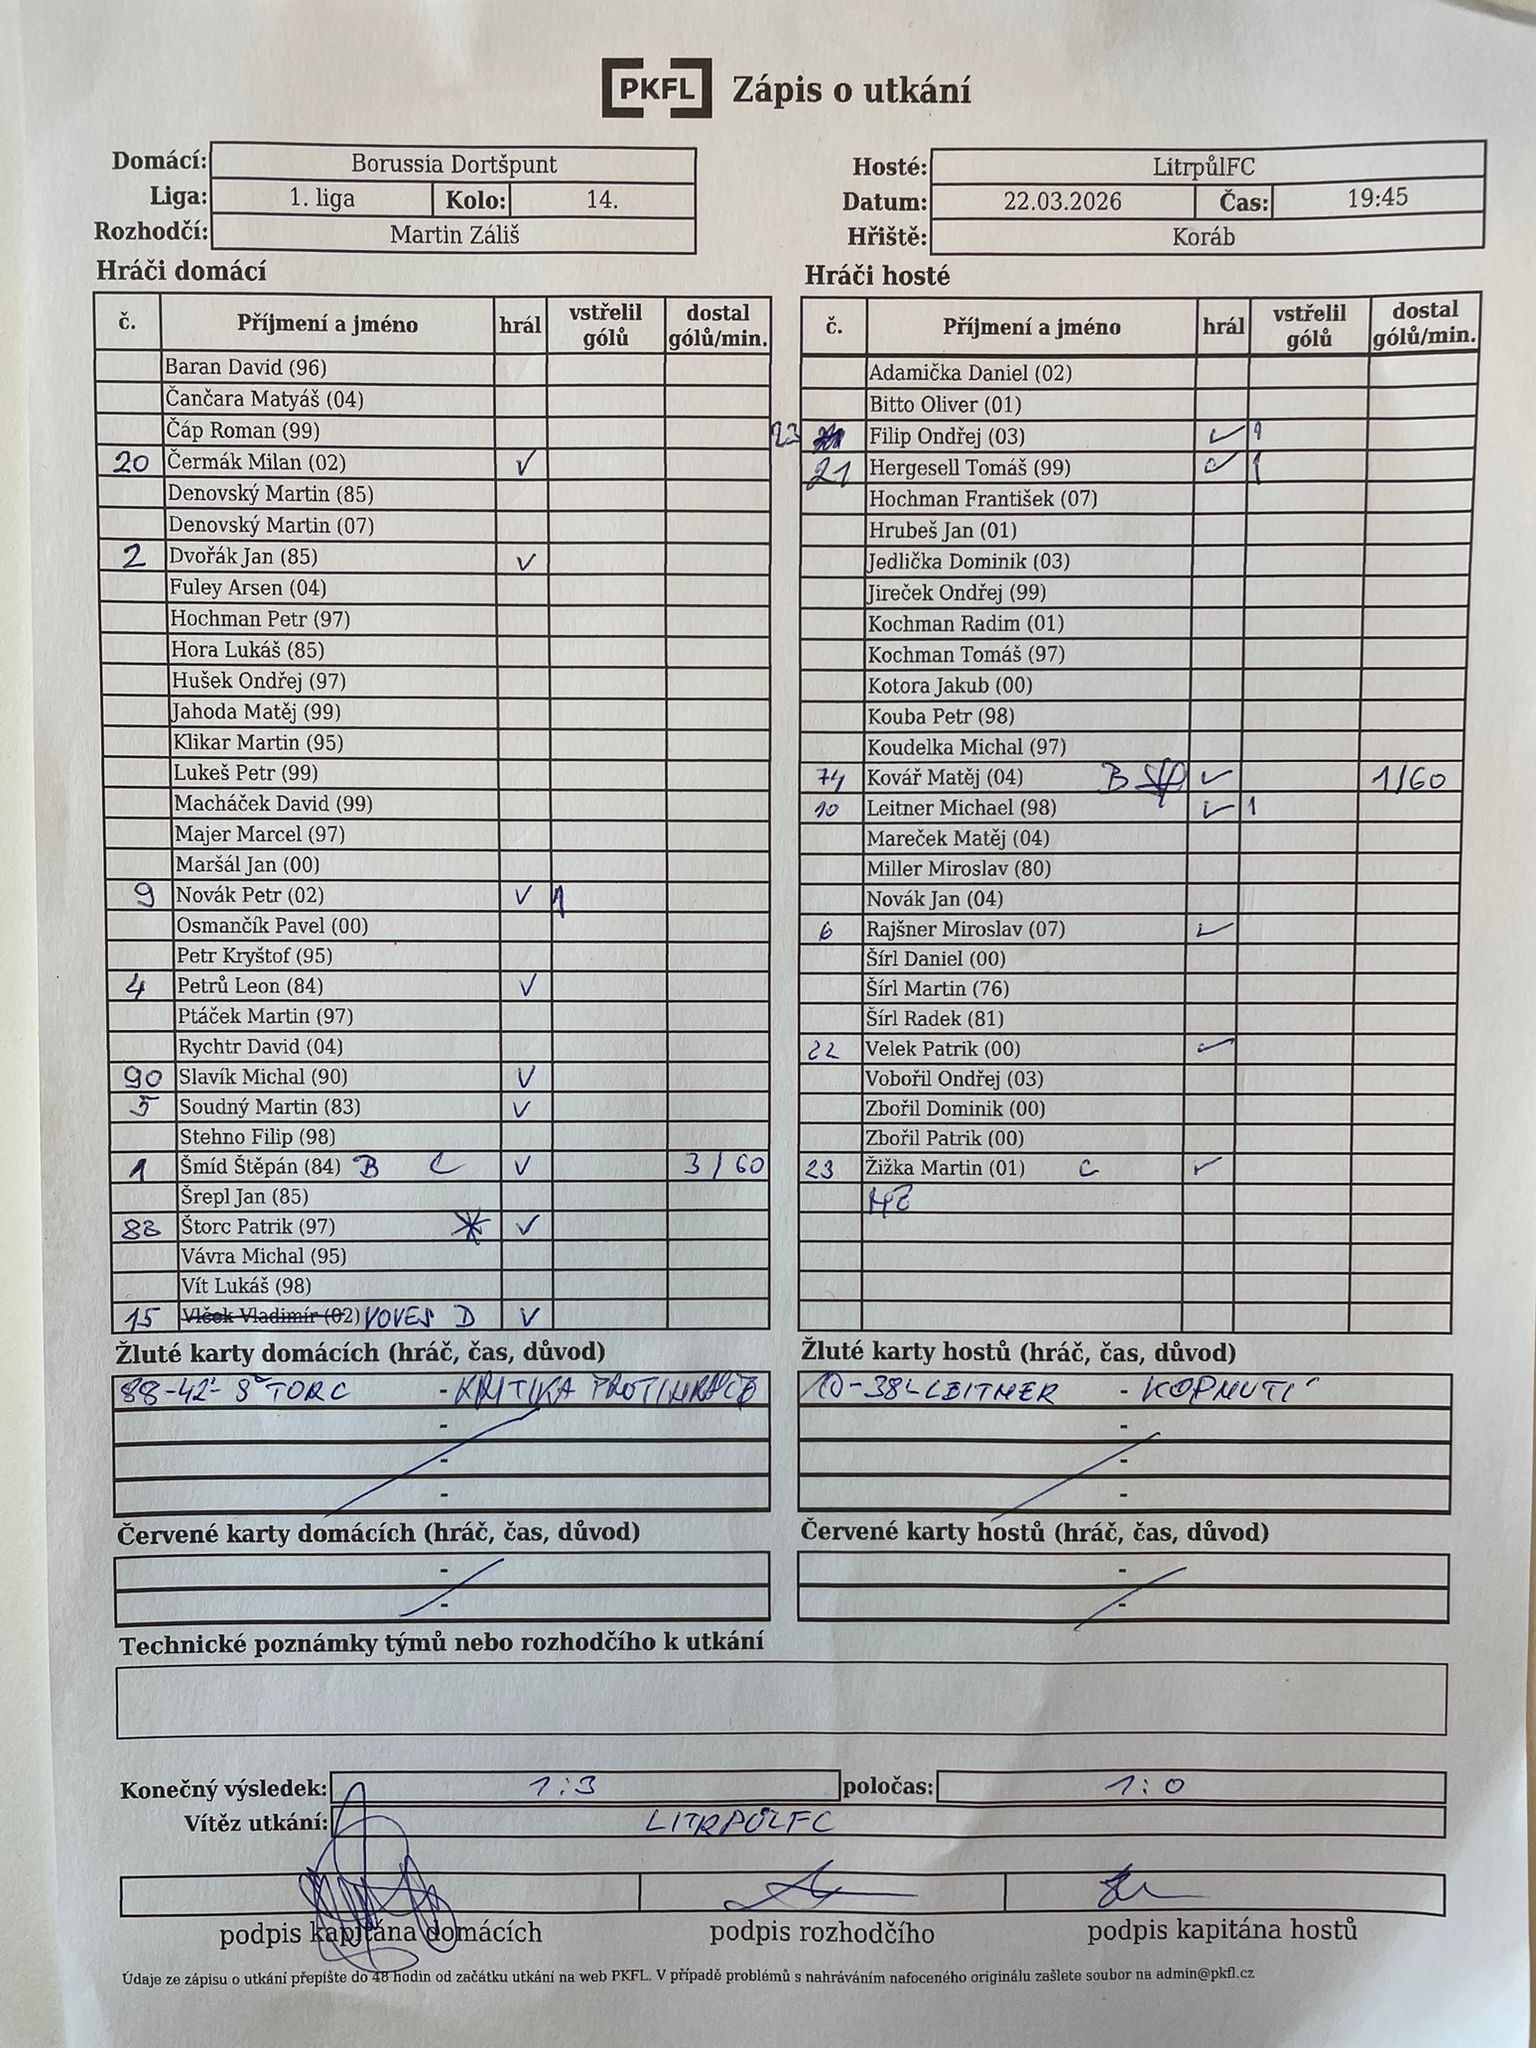 PKFL Zápis o utkání
Domácí: Borussia Dortšpunt
Liga: 1. liga Kolo: 14.
Rozhodčí: Martin Záliš
Hosté: LitrpůlFC
Datum: 22.03.2026 Čas: 19:45
Hřiště: Koráb
Hráči domácí
č. Příjmení a jméno hrál vstřelil gólů dostal gólů/min.
Baran David (96)
Čančara Matyáš (04)
Čáp Roman (99)
20 Čermák Milan (02) ✓
Denovský Martin (85)
Denovský Martin (07)
2 Dvořák Jan (85) ✓
Fuley Arsen (04)
Hochman Petr (97)
Hora Lukáš (85)
Hušek Ondřej (97)
Jahoda Matěj (99)
Klikar Martin (95)
Lukeš Petr (99)
Macháček David (99)
Majer Marcel (97)
Maršál Jan (00)
9 Novák Petr (02) ✓ 1
Osmančík Pavel (00)
Petr Kryštof (95)
4 Petrů Leon (84) ✓
Ptáček Martin (97)
Rychtr David (04)
90 Slavík Michal (90) ✓
5 Soudný Martin (83) ✓
Stehno Filip (98)
1 Šmíd Štěpán (84) B C ✓ 3/60
Šrepl Jan (85)
88 Štorc Patrik (97) ✓
Vávra Michal (95)
Vít Lukáš (98)
15 Vlček Vladimír (02) VOVES D ✓
Hráči hosté
č. Příjmení a jméno hrál vstřelil gólů dostal gólů/min.
Adamička Daniel (02)
Bitto Oliver (01)
23 Filip Ondřej (03) ✓ 1
21 Hergesell Tomáš (99) ✓ 1
Hochman František (07)
Hrubeš Jan (01)
Jedlička Dominik (03)
Jireček Ondřej (99)
Kochman Radim (01)
Kochman Tomáš (97)
Kotora Jakub (00)
Kouba Petr (98)
Koudelka Michal (97)
74 Kovář Matěj (04) B ✓ 1/60
10 Leitner Michael (98) ✓ 1
Mareček Matěj (04)
Miller Miroslav (80)
Novák Jan (04)
6 Rajšner Miroslav (07) ✓
Šírl Daniel (00)
Šírl Martin (76)
Šírl Radek (81)
22 Velek Patrik (00) ✓
Vobořil Ondřej (03)
Zbořil Dominik (00)
Zbořil Patrik (00)
23 Žižka Martin (01) C ✓
Žluté karty domácích (hráč, čas, důvod)
88-42'- ŠTORC - KRITIKA PROTIHRÁČE
-
-
-
Žluté karty hostů (hráč, čas, důvod)
10-38'-LEITNER - KOPNUTÍ
-
-
-
Červené karty domácích (hráč, čas, důvod)
-
-
Červené karty hostů (hráč, čas, důvod)
-
-
Technické poznámky týmů nebo rozhodčího k utkání
Konečný výsledek: 1:3 poločas: 1:0
Vítěz utkání: LITRPŮLFC
podpis kapitána domácích podpis rozhodčího podpis kapitána hostů
Údaje ze zápisu o utkání přepište do 48 hodin od začátku utkání na web PKFL. V případě problémů s nahráváním nafoceného originálu zašlete soubor na admin@pkfl.cz